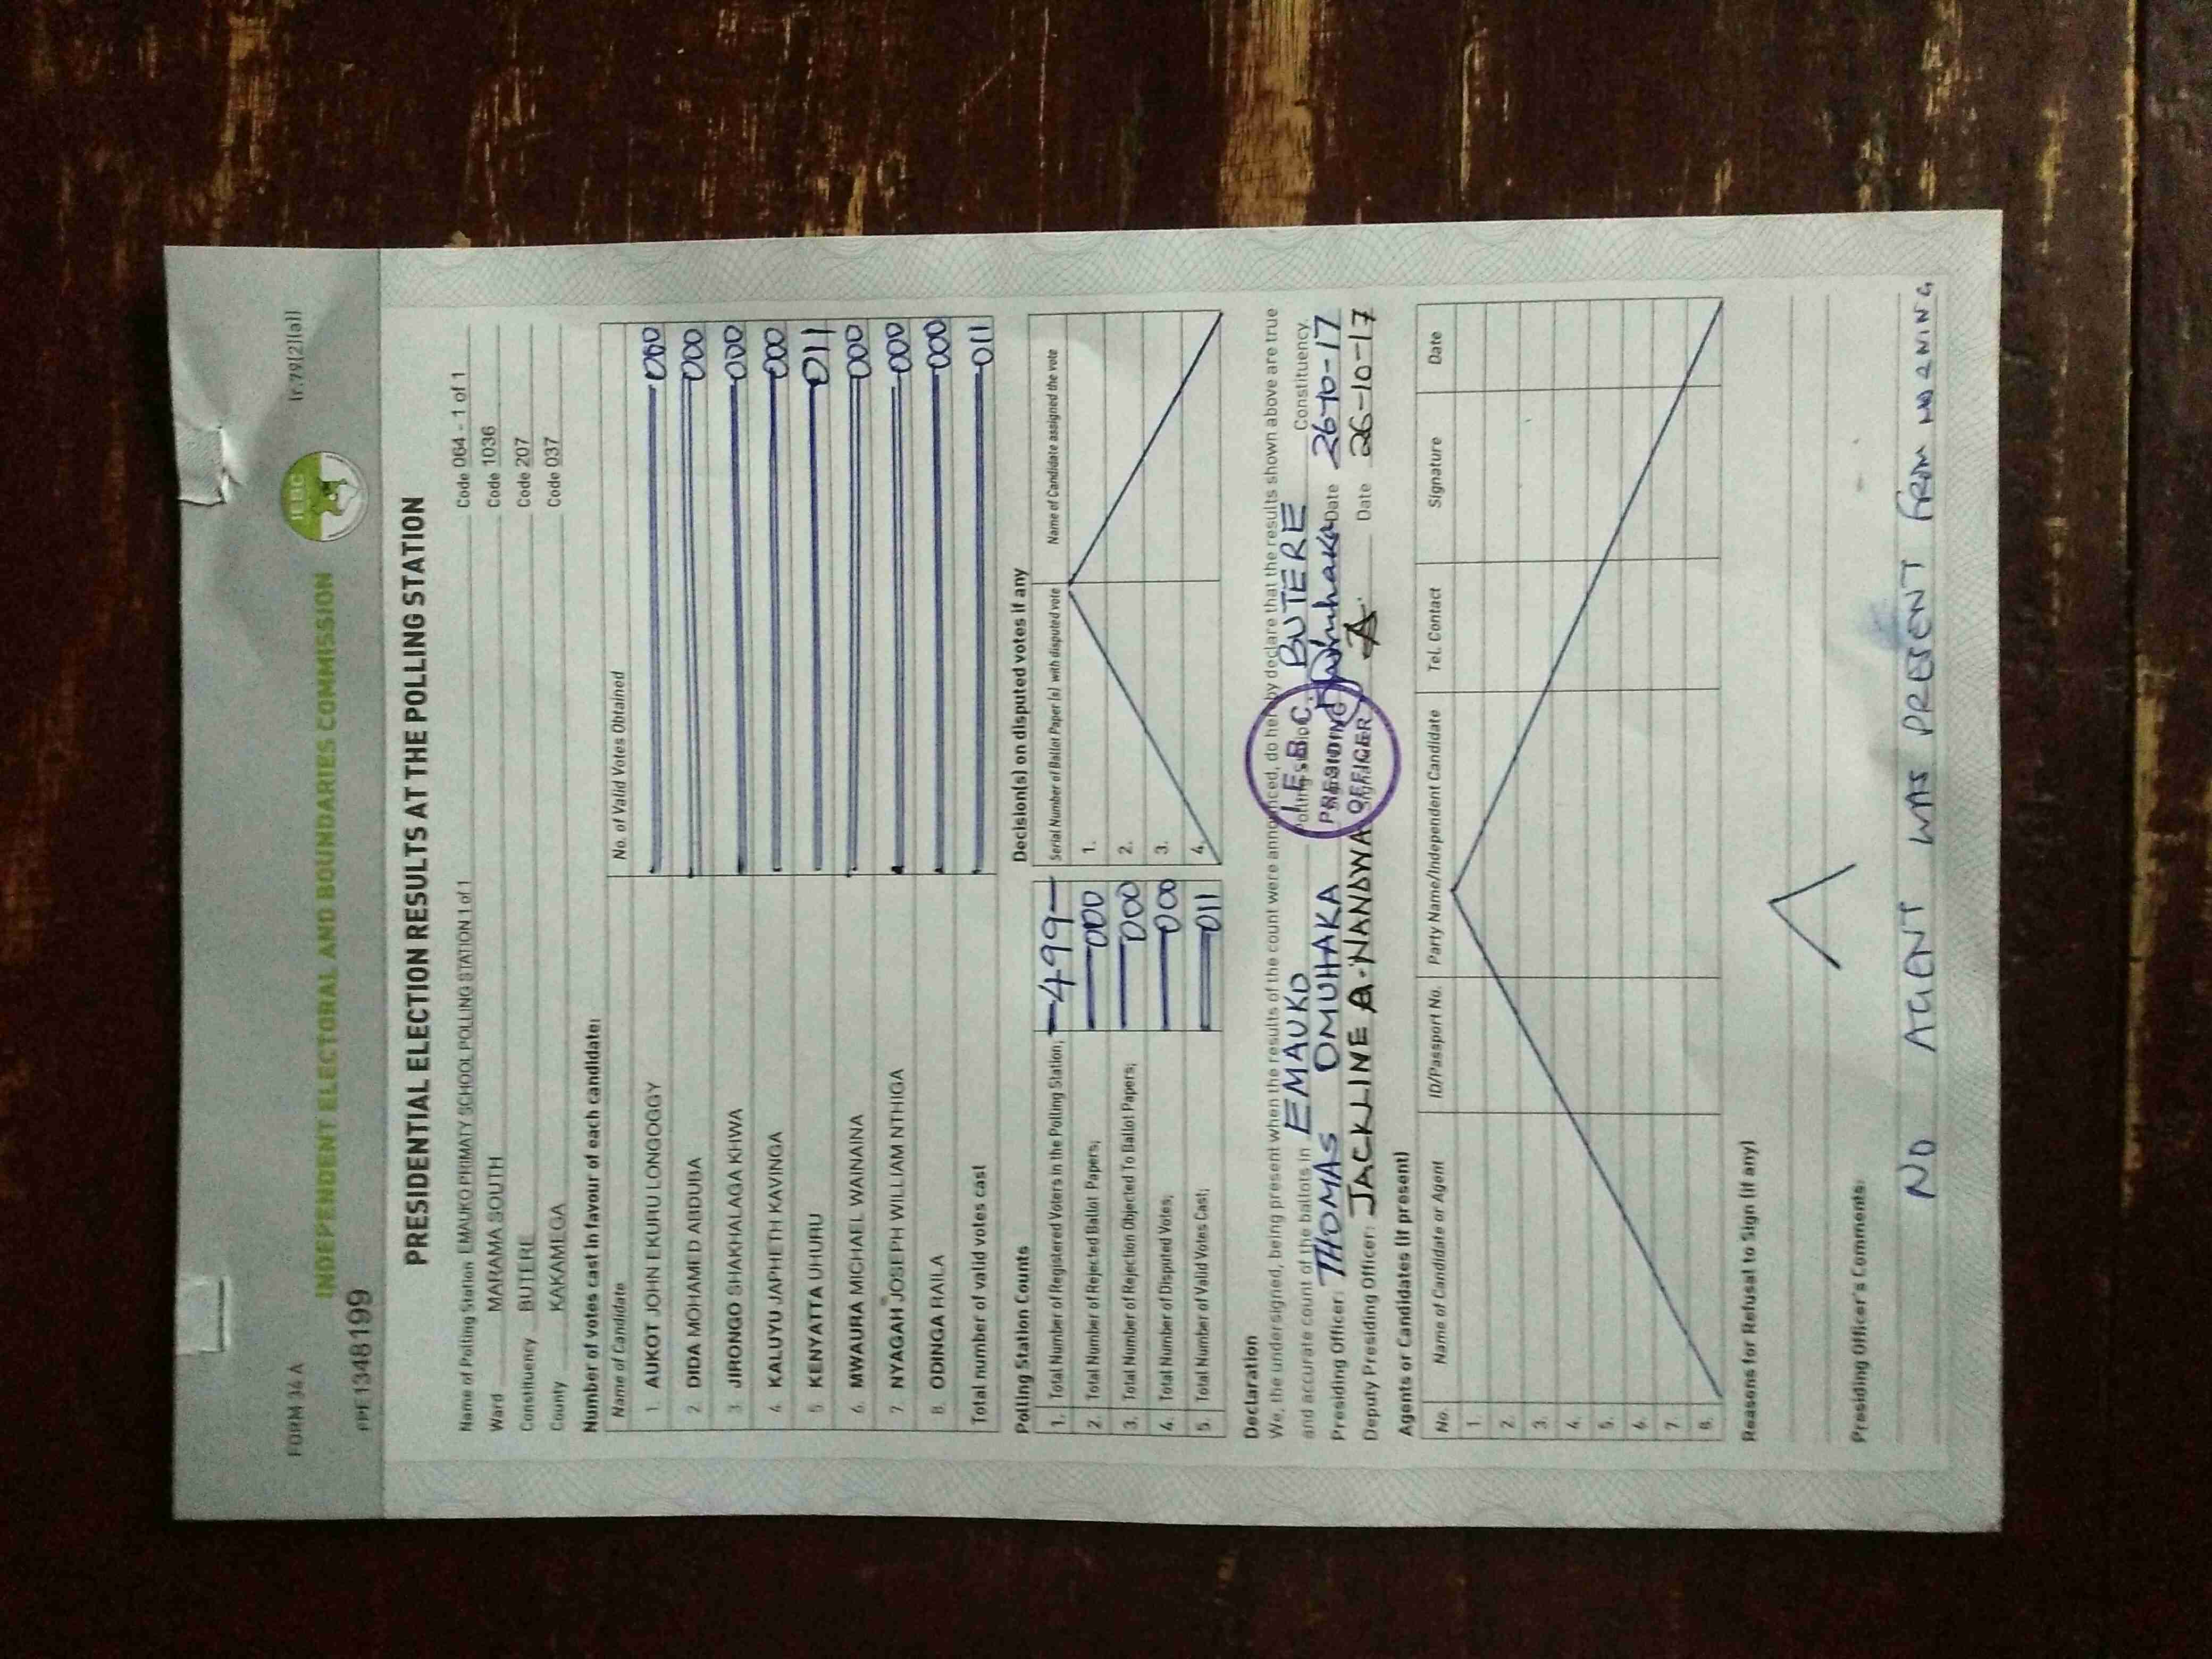 FORM 34 A
(r.79(2)(a))
IEBC
INDEPENDENT ELECTORAL AND BOUNDARIES COMMISSION
PPE1348199
PRESIDENTIAL ELECTION RESULTS AT THE POLLING STATION
Name of Polling Station EMAUKO PRIMATY SCHOOL POLLING STATION 1 of 1 Code 064 - 1 of 1
Ward MARAMA SOUTH Code 1036
Constituency BUTERE Code 207
County KAKAMEGA Code 037
Number of votes cast in favour of each candidate:
Name of Candidate No. of Valid Votes Obtained
1. AUKOT JOHN EKURU LONGOGGY 000
2. DIDA MOHAMED ABDUBA 000
3. JIRONGO SHAKHALAGA KHWA 000
4. KALUYU JAPHETH KAVINGA 000
5. KENYATTA UHURU 011
6. MWAURA MICHAEL WAINAINA 000
7. NYAGAH JOSEPH WILLIAM NTHIGA 000
8. ODINGA RAILA 000
Total number of valid votes cast 011
Polling Station Counts
1. Total Number of Registered Voters in the Polling Station; 499
2. Total Number of Rejected Ballot Papers; 000
3. Total Number of Rejection Objected To Ballot Papers; 000
4. Total Number of Disputed Votes; 000
5. Total Number of Valid Votes Cast; 011
Decision(s) on disputed votes if any
Serial Number of Ballot Paper (s) with disputed vote Name of Candidate assigned the vote
1.
2.
3.
4.
Declaration
We, the undersigned, being present when the results of the count were announced, do hereby declare that the results shown above are true
and accurate count of the ballots in EMAUKO BUTERE Constituency.
Presiding Officer: THOMAS OMUHAKA Date 26-10-17
Deputy Presiding Officer: JACKLINE A. NANDWA Date 26-10-17
I.E.B.C.
PRESIDING
OFFICER
Agents or Candidates (if present)
No. Name of Candidate or Agent ID/Passport No. Party Name/Independent Candidate Tel. Contact Signature Date
1.
2.
3.
4.
5.
6.
7.
8.
Reasons for Refusal to Sign (if any)
Presiding Officer's Comments:
NO AGENT WAS PRESENT FROM MORNING